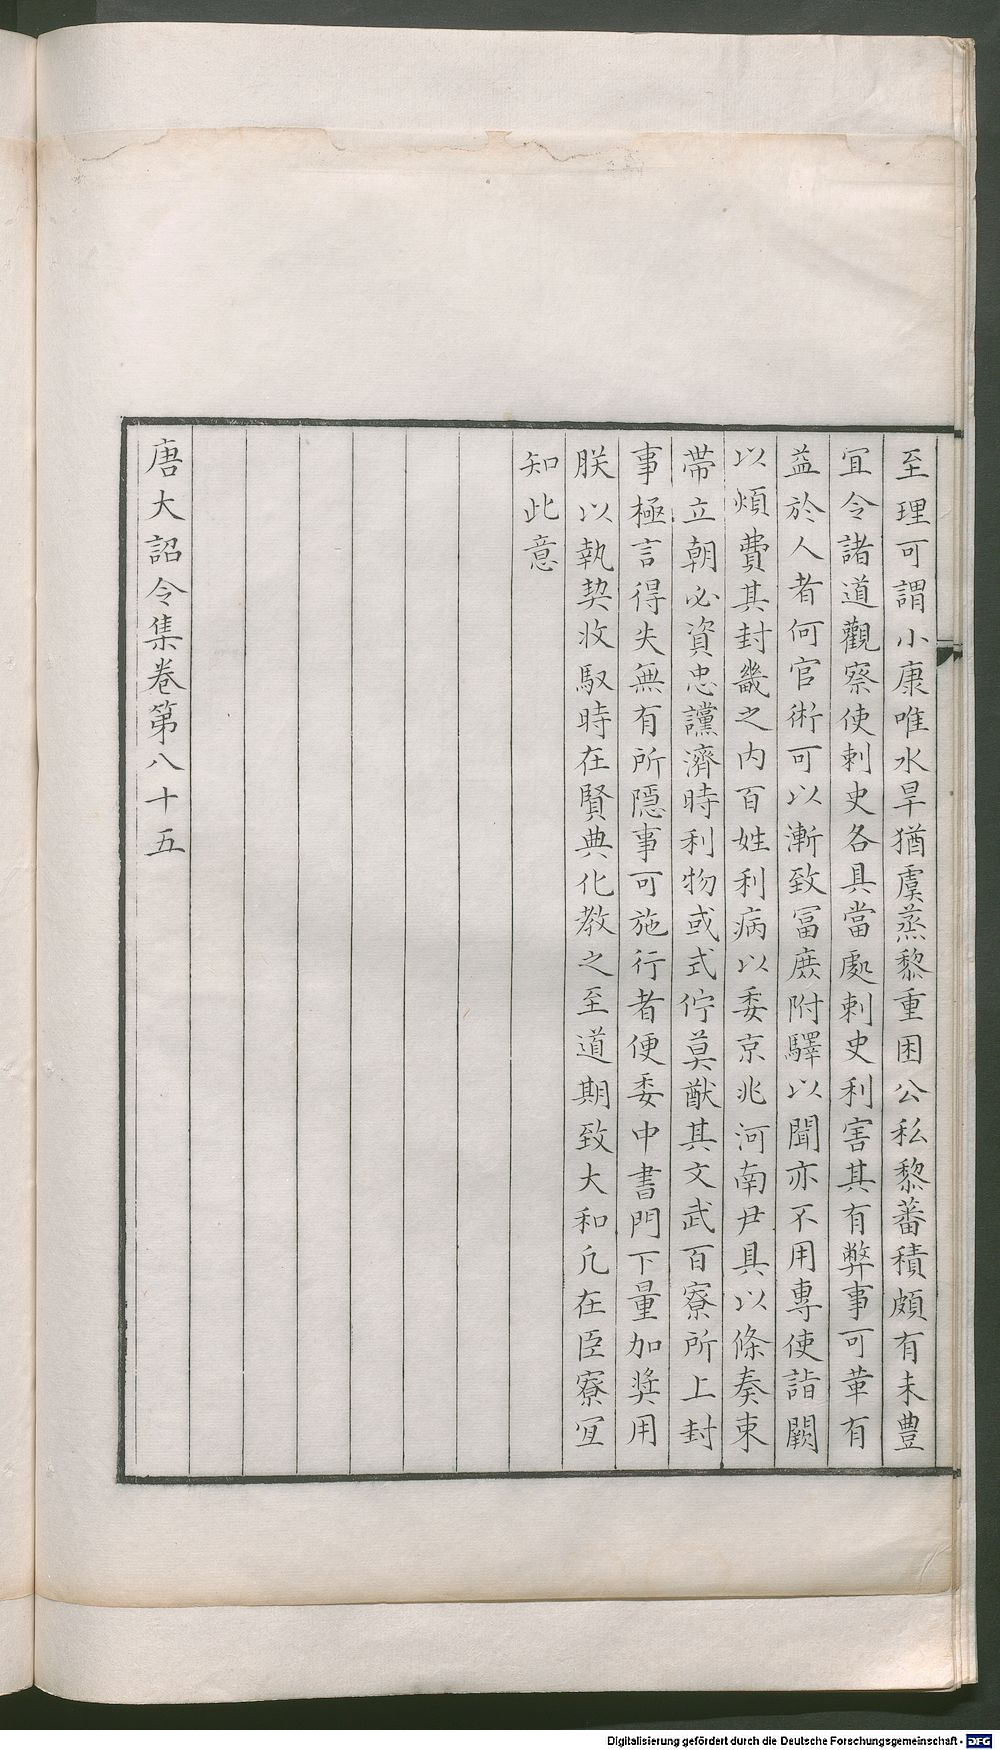 至理可謂小康唯水旱猶虞蒸黎重困公私黎蕃積頗有未豊
宜令諸道觀察使刺史各具當處刺史利害其有弊事可革有
益於人者何官術可以漸致冨庶附驛以聞亦不用專使詣闕
以煩費其封畿之内百姓利病以委京兆河南尹具以條奏東
帶立朝必資忠讜濟時利物或式佇莫猷其文武百寮所上封
事極言得失無有所隱事可施行者便委中書門下量加奨用
朕以執契收馭時在賢典化教之至道期致大和凡在臣寮宜
知此意
唐大詔令集卷第八十五
Digitalisierung gefördert durch die Deutsche Forschungsgemeinschaft - DFG